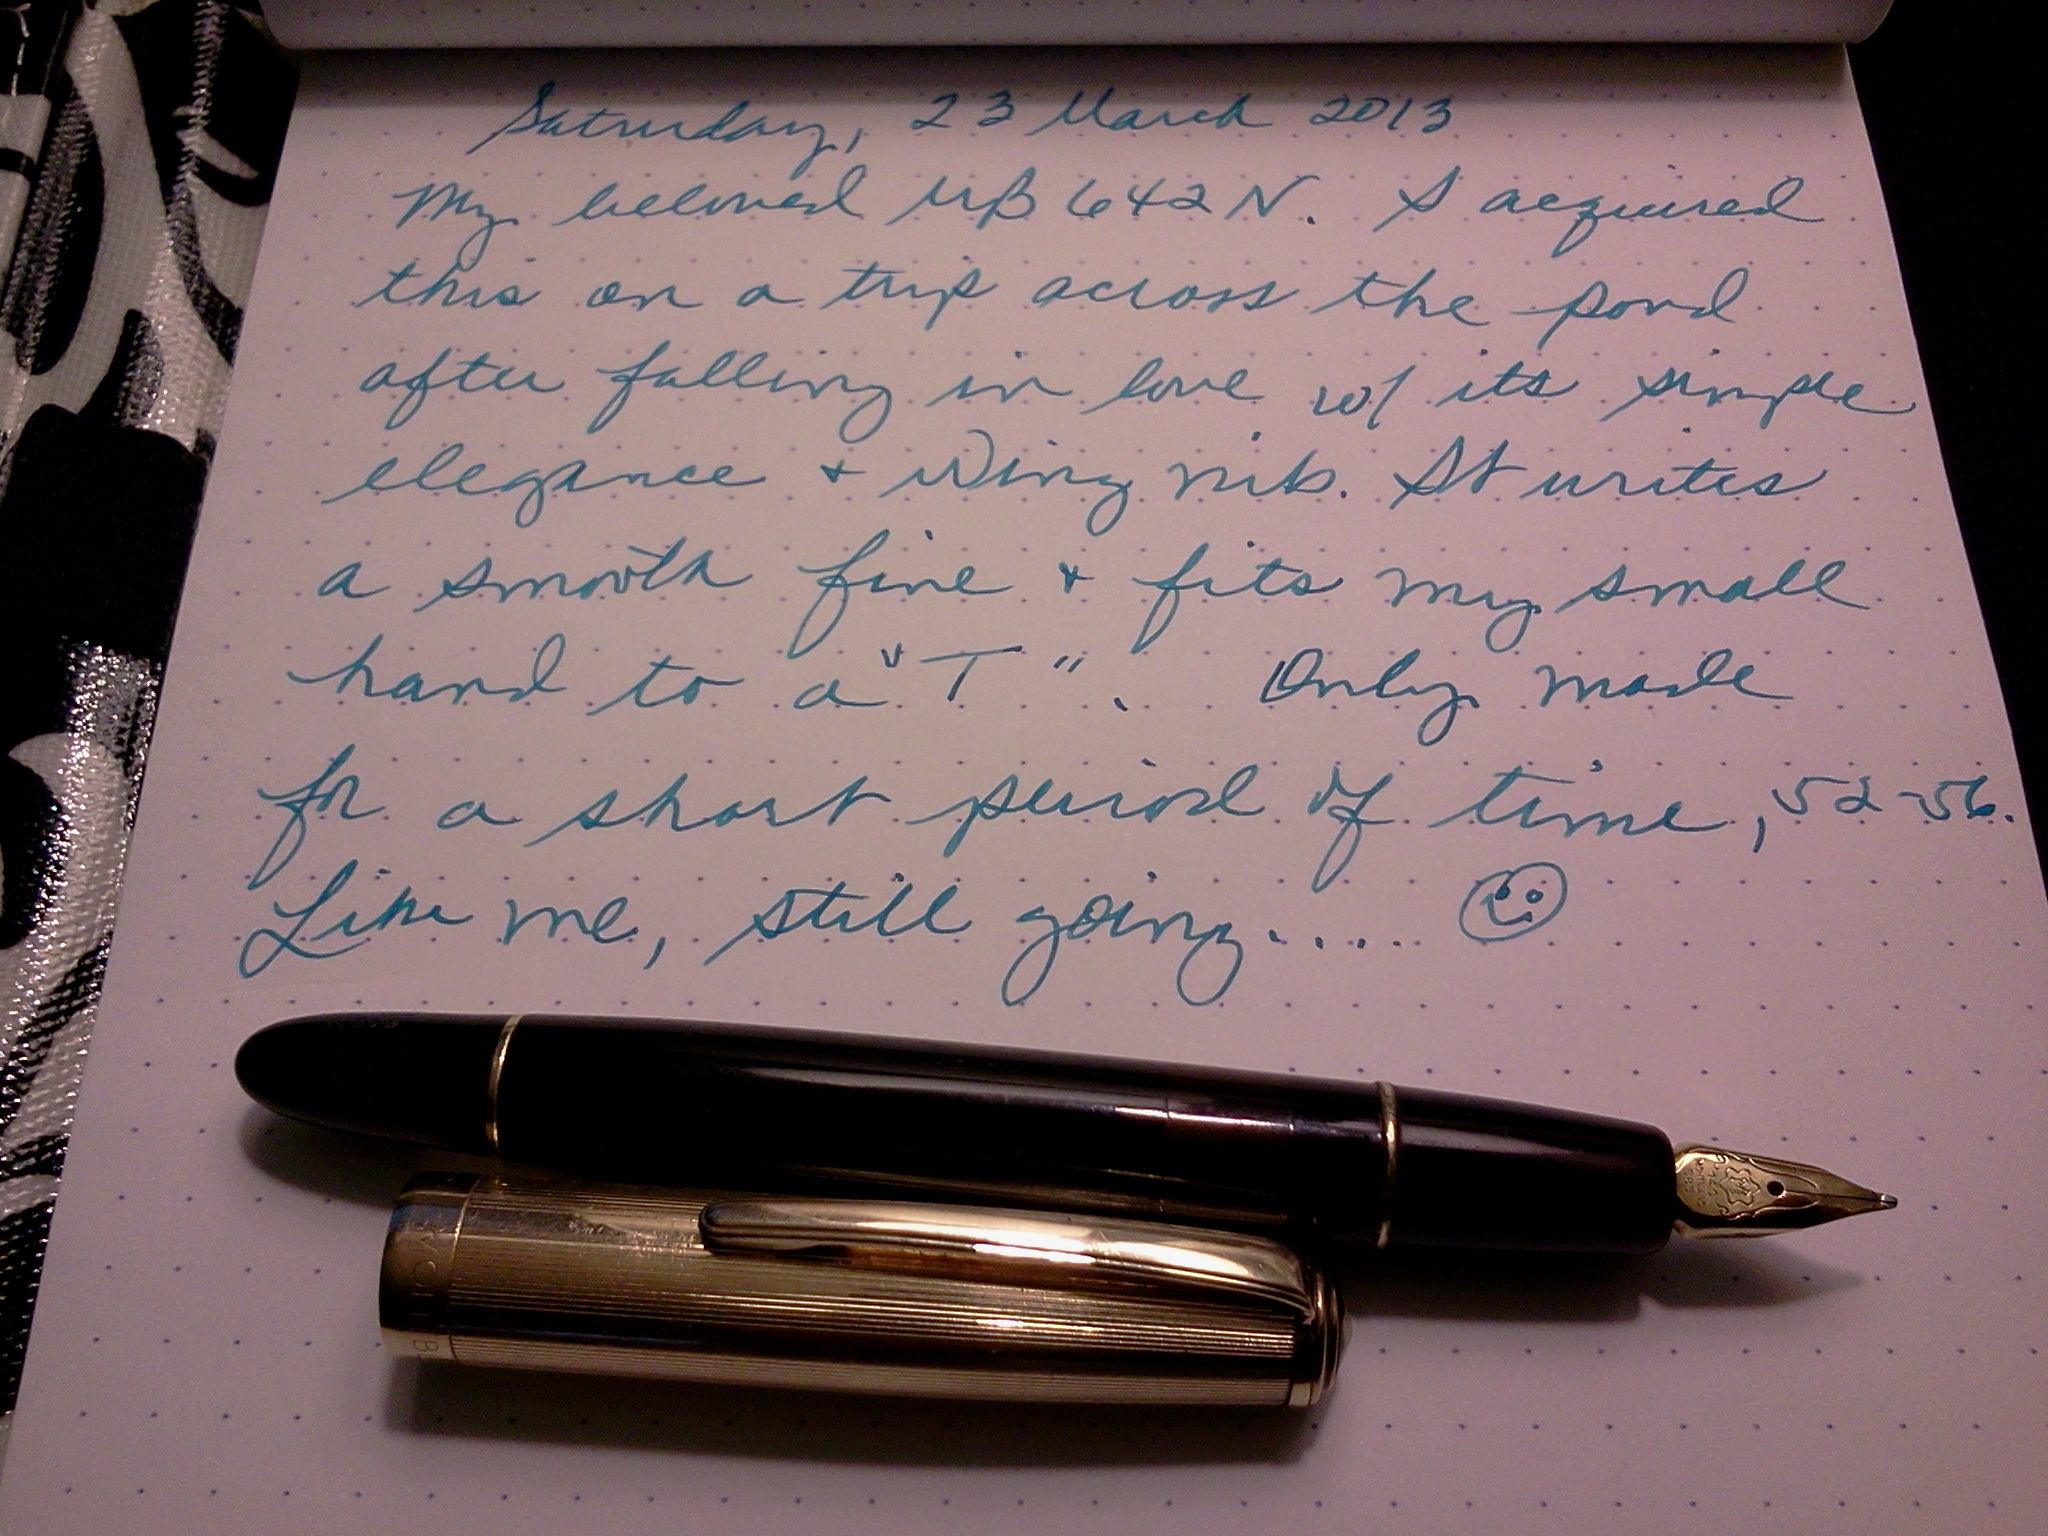 Saturday, 23 March 2013
My beloved MB 642 N. I acquired
this on a trip across the pond
after falling in love w/ its simple
elegance + Wing nib. It writes
a smooth fine + fits my small
hand to a "T". Only made
for a short period of time, 52-56.
Like me, still going.....